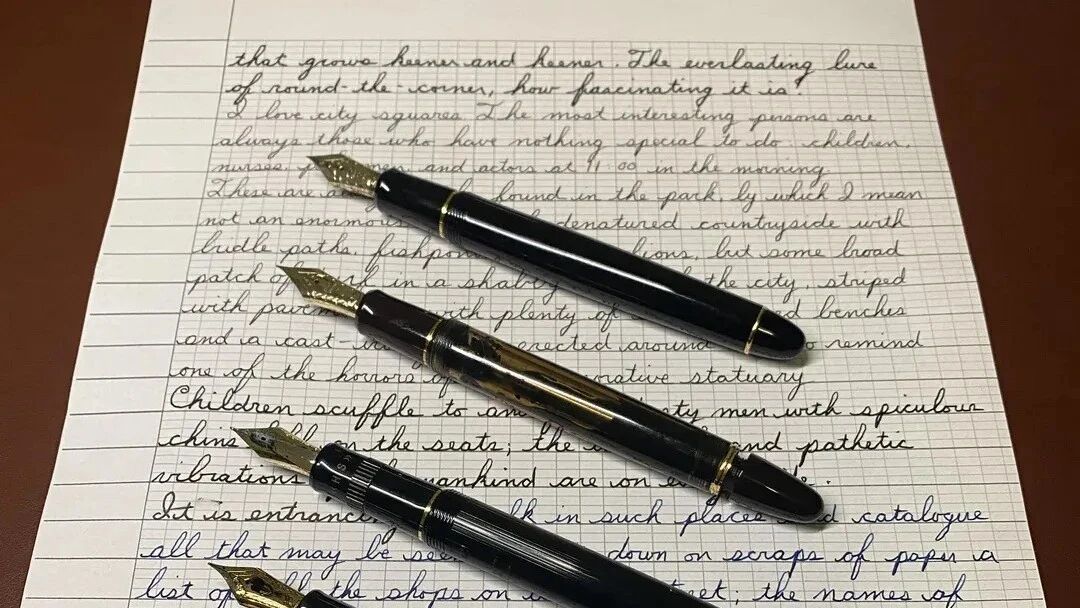 that grows keener and keener. The everlasting lure
of round-the-corner, how fascinating it is!
I love city squares. The most interesting persons are
always those who have nothing special to do: children,
nurses, and actors at 11:00 in the morning.
These are found in the park, by which I mean
not an denatured countryside with
bridle paths, but some broad
patch of in a shabby the city, striped
with with plenty of benches
and a erected around remind
one of the horrors statuary
Children scuffle to men with spiculous
chins on the seats; the and pathetic
vibrations mankind are on
It is in such places catalogue
all that may be down on scraps of paper a
list of the shops on the names of